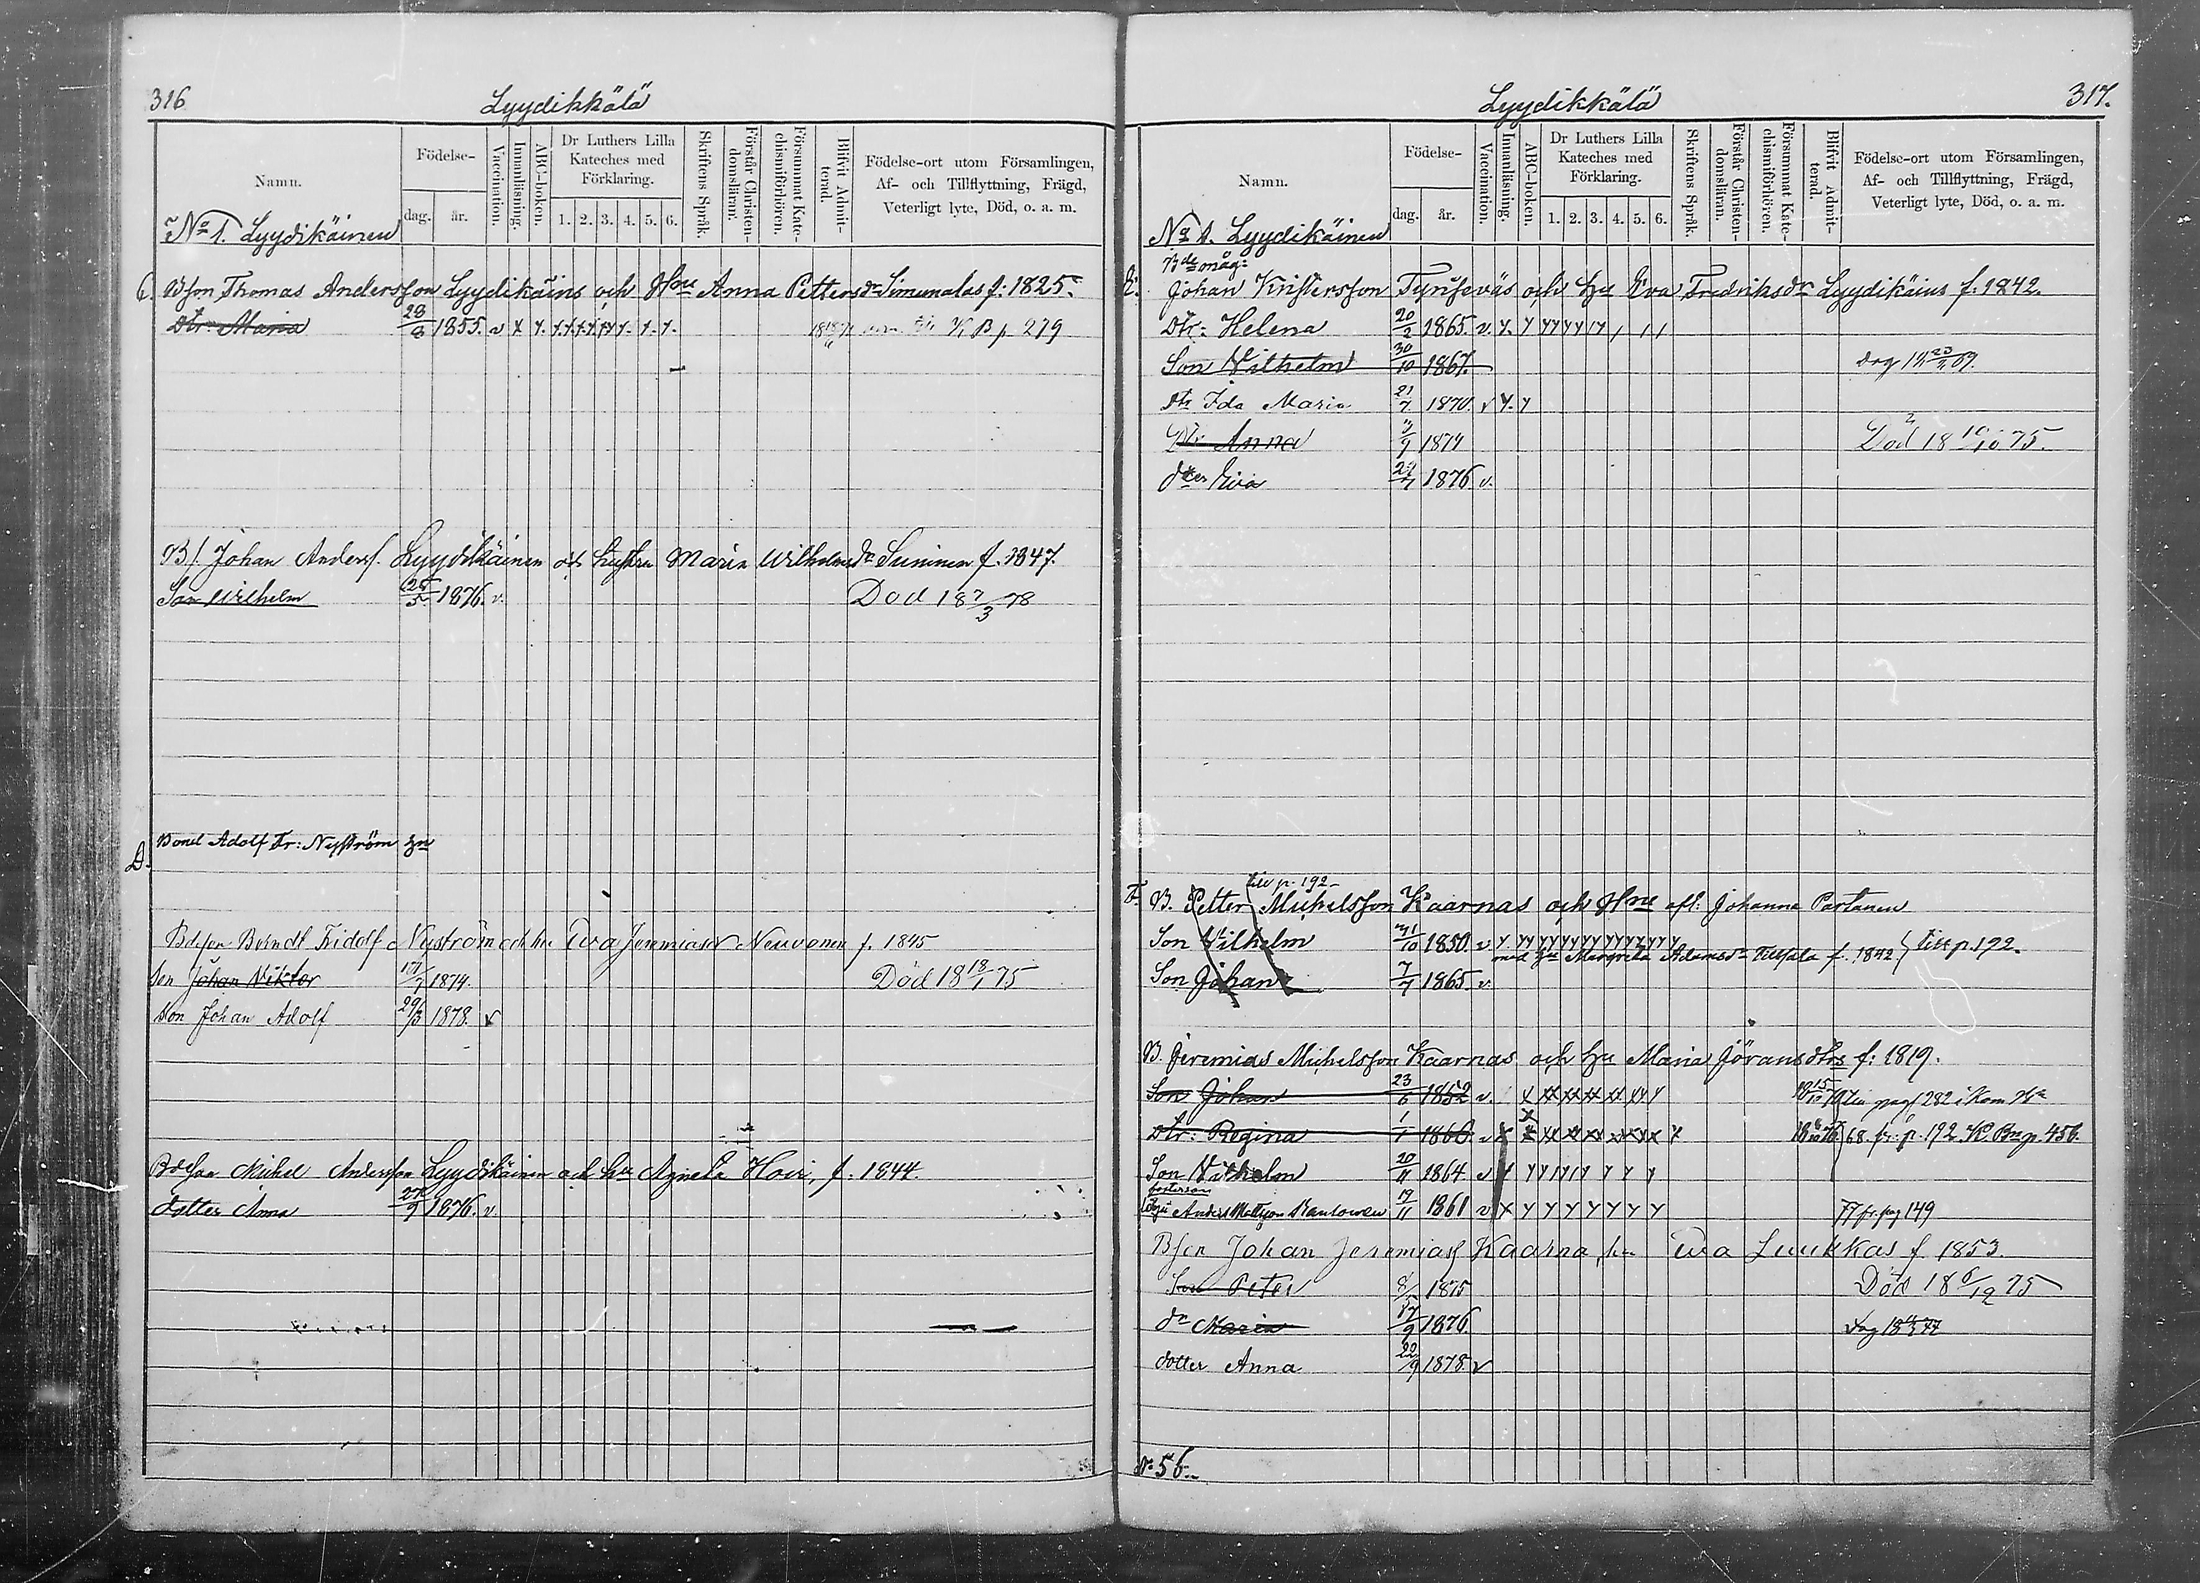 316
Lyydikkälä
Namn.
Födelse-
dag.
år.
Vaccination.
Innanläsning.
ABC-boken.
Dr Luthers Lilla
Kateches med
Förklaring.
1. 2. 3. 4. 5. 6.
Skriftens Språk.
Förstår Christen-
domsläran.
Försummat Kate-
chismiförhören.
Blifvit Admit-
terad.
Födelse-ort utom Församlingen,
Af- och Tillflyttning, Frägd,
Veterligt lyte, Död, o. a. m.
No 1. Lyydikäinen
C. Thomas Andersson Lyydikäins och Hru Anna Pettersdr Simunalas f: 1825.
Dtr: Maria 28/8 1855. v K B p 279
B/. Johan Anders. Lyydikäinen och hustru Maria Wilhelmsdr Suninen f. 1847.
Son Wilhelm 28/5 1876. v. Död 18 7/3 78
D. Bond Adolf Fr: Nyström hn
Bdeson Berndt Fridolf Nyström och hu Eva Jeremiasdr Neuvonen f. 1845
Son Johan Viktor 1874. Död 18 18/1 75
Son Johan Adolf 29/3 1878. v
Bdeson Michel Andersson Lyydikäinen och hu Agneta Hovi, f. 1844.
dotter Anna 27/9 1876. v.
317.
Lyydikkälä
Namn.
Födelse-
dag.
år.
Vaccination.
Innanläsning.
ABC-boken.
Dr Luthers Lilla
Kateches med
Förklaring.
1. 2. 3. 4. 5. 6.
Skriftens Språk.
Förstår Christen-
domsläran.
Försummat Kate-
chismiförhören.
Blifvit Admit-
terad.
Födelse-ort utom Församlingen,
Af- och Tillflyttning, Frägd,
Veterligt lyte, Död, o. a. m.
No 1. Lyydikäinen
Bde måg:
E. Johan Kristersson Tyriseväs och hu Eva Fredriksdr Lyydikäins f. 1842.
Dtr: Helena 20/2 1865. v.
Son Vilhelm 30/10 1867.
Dtr Ida Maria 21/7 1870. v
Dtr Anna 1874 Död 18 10/10 75.
dter Eva 1876 v.
till p. 192
F. B. Petter Michelsson Kaarnas och Hru afl: Johanna Partanen
Son Vilhelm 31/10 1850. v
med hu Margreta Adamsdr f. 1842 till p. 192.
Son Johan 7/7 1865. v.
B. Jeremias Michelsson Kaarnas och hu Maria Göransdtr f: 1819.
Son Johan 23/6 1852 v. pag 282 i Kom
Dtr: Regina 1/1 1860. v 68. fr: p. 192. K. Bn p. 456.
Son Vilhelm 20/11 1864 v
fosterson
Anders Mattsson 19/11 1861 v 77 fr. pag 149
Bson Johan Jeremiass Kaarna, hu Eva Luukkas f. 1853.
Son Peter 1875 Död 18 6/12 75
dr Maria 17/9 1876
dotter Anna 22/9 1878. v
N: 56.